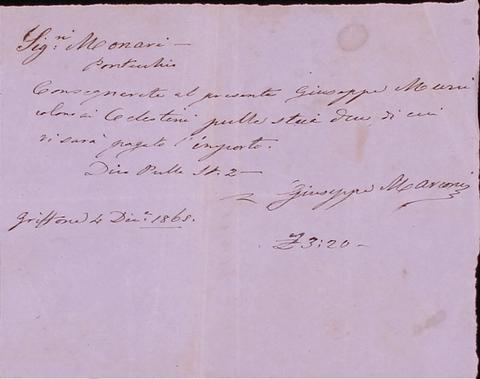 Sig.ri Monari —
Pontecchio
Consegnerete al presente Giuseppe Muri
colono di Celestini pulle staia due, di cui
vi sarà pagato l'importo.
Dico Pulle St. 2 —
Giuseppe Marconi
Griffone 4 Dic.e 1868.
£ 3:20 —